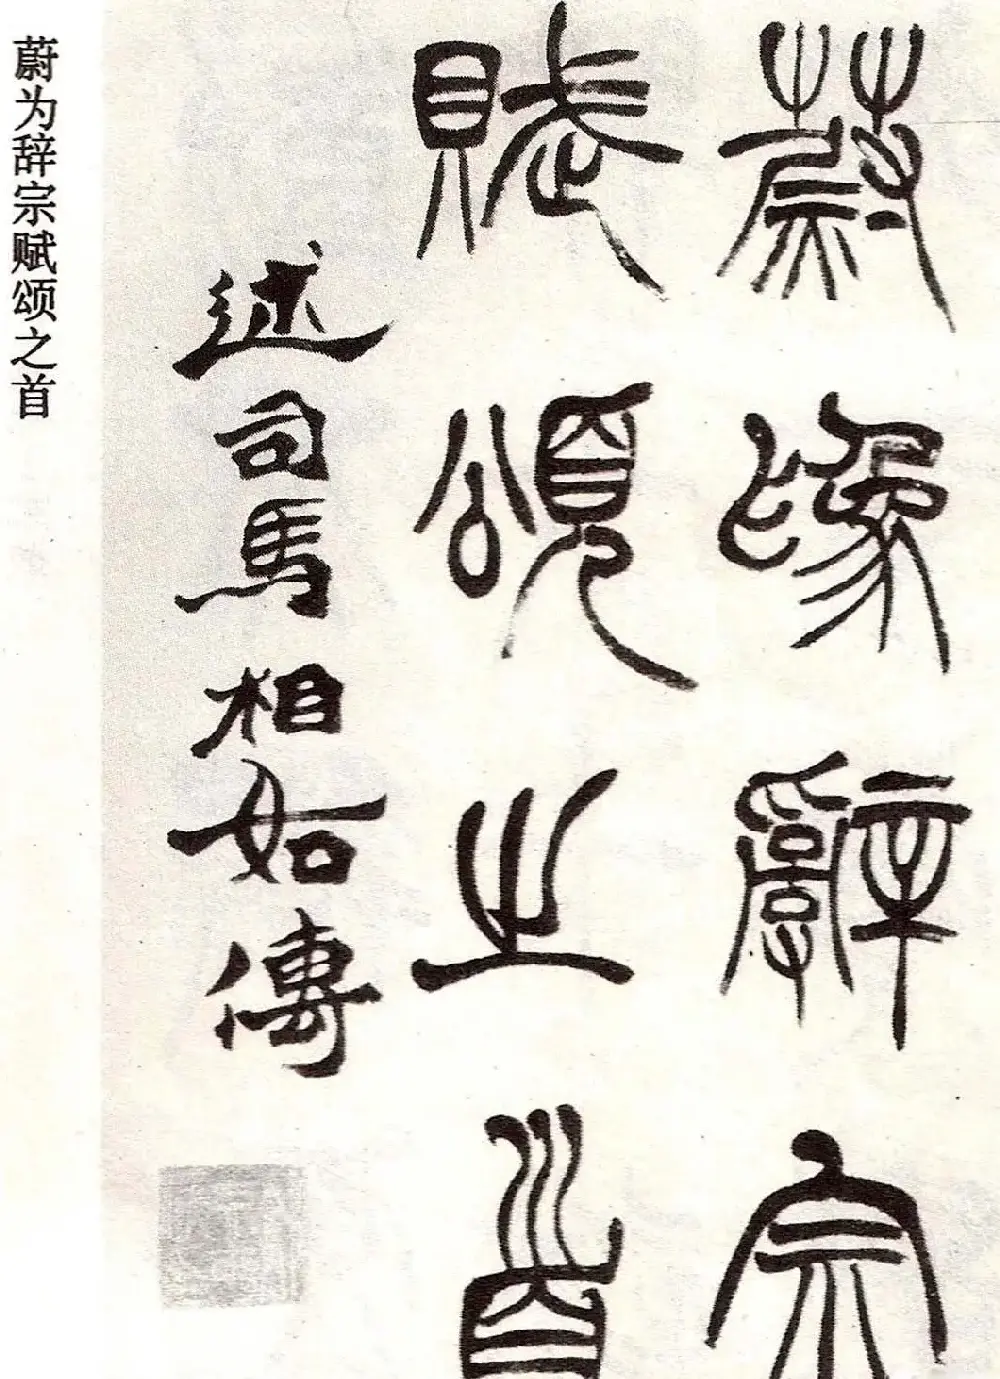 蔚為辭宗
賦頌之首
述司馬相如傳
蔚为辞宗赋颂之首